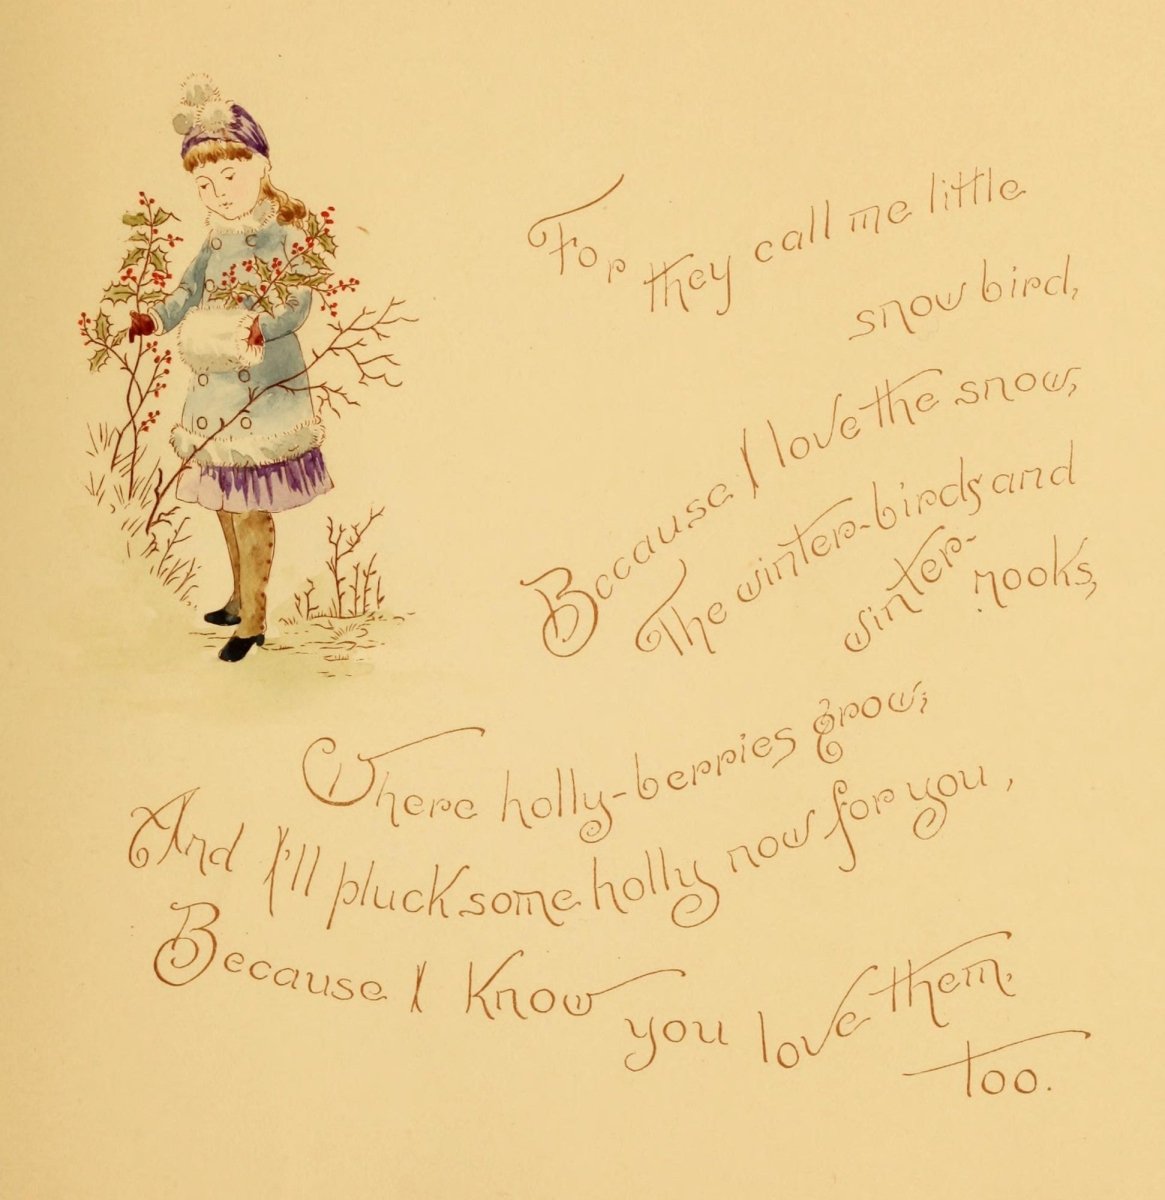 For they call me little
snow bird,
Because I love the snow,
The winter-birds and
winter-
nooks,
Where holly-berries grow;
And I'll pluck some holly now for you,
Because I know you love them,
too.